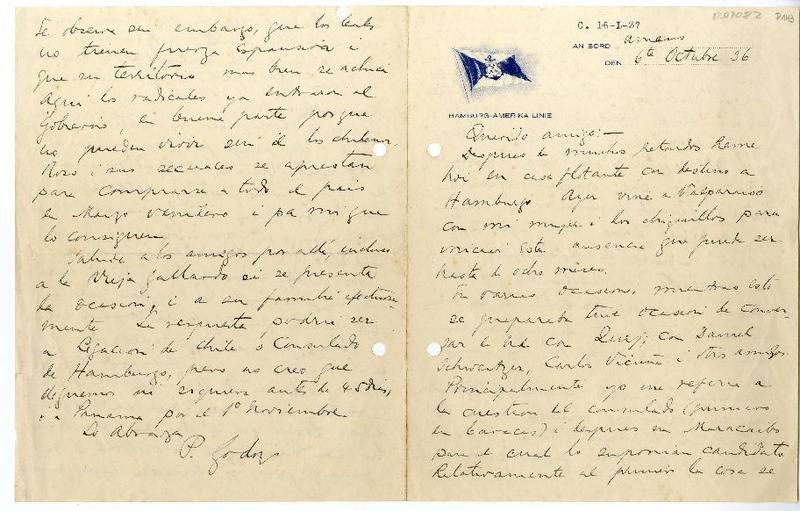 C. 16-I-37
AN BORD
DEN 6te Octubre 36
HAMBURG-AMERIKA LINIE
Querido amigo:—
Despues de muchos retardos
hoi en casa flotante con destino a
Hamburgo. Ayer vine a Valparaiso
con mi mujer i los chiquillos para
iniciar esta ausencia que puede ser
hasta de ocho meses.
En varias ocasiones, mientras esto
se preparaba tuve ocasion de conver-
sar con con Daniel
Schweitzer, Carlos Vicuña i otros amigos.
Principalmente yo me referia a
la cuestion del consulado (primero
en Caracas) i despues en Maracaibo
para el cual lo suponian candidato
Relativamente al primero la cosa se
Se observa sin embargo, que los
no tienen fuerza espansiva i
que su territorio mas bien se achica
Aqui los radicales ya entraron al
Gobierno, en buena parte porque
no pueden vivir sin él los
Ross i sus secuaces se aprestan
para comprarse a todo el pais
en Marzo venidero i pa mi que
lo consiguen.
Salude a los amigos por allí,
a la Vieja Gallardo si se presenta
la ocasion, i a su familia efectiva-
mente. La respuesta podria ser
a Legacion de Chile o Consulado
de Hamburgo, pero no creo que
lleguemos ni siquiera antes de 45 dias,
i a Panama por el 1º Noviembre
Lo Abraza
P. Godoy